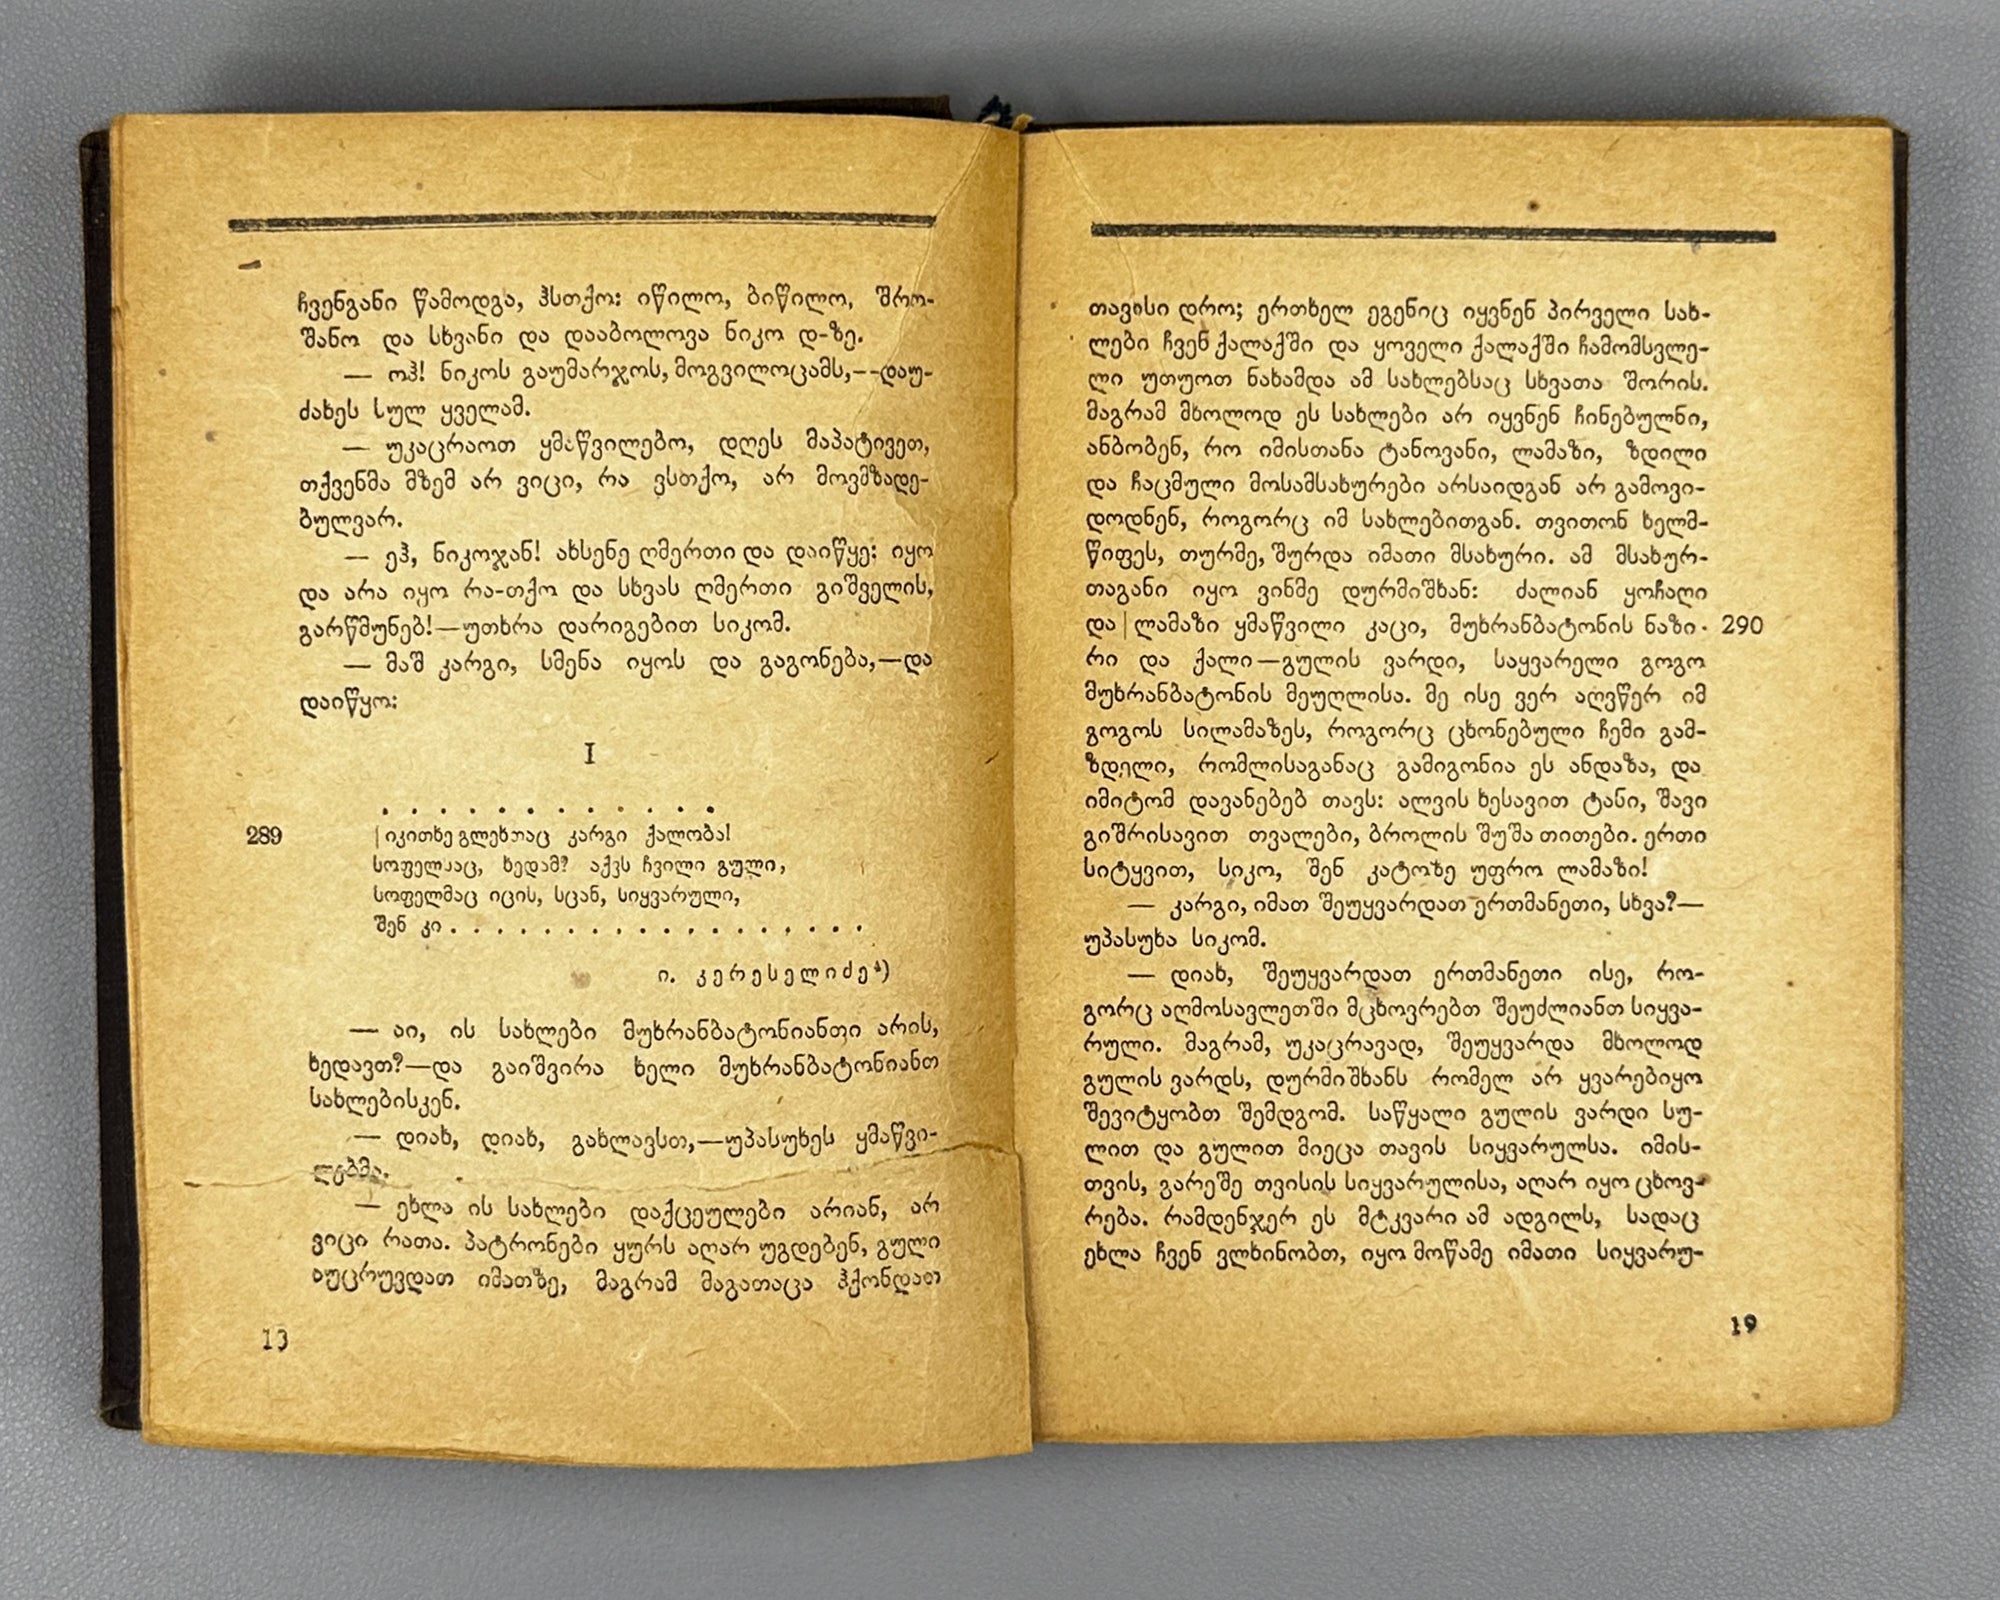 ჩვენგანი წამოდგა, ჰსთქო: იწილო, ბიწილო, შრო-
შანო და სხვანი და დააბოლოვა ნიკო დ-ზე.
— ოჰ! ნიკოს გაუმარჯოს, მოგვილოცამს,—დაუ-
ძახეს სულ ყველამ.
— უკაცრაოთ ყმაწვილებო, დღეს მაპატივეთ,
თქვენმა მზემ არ ვიცი, რა ვსთქო, არ მოვმზადე-
ბულვარ.
— ეჰ, ნიკოჯან! ახსენე ღმერთი და დაიწყე: იყო
და არა იყო რა-თქო და სხვას ღმერთი გიშველის,
გარწმუნებ!—უთხრა დარიგებით სიკომ.
— მაშ კარგი, სმენა იყოს და გაგონება,—და
დაიწყო:
I
. . . . . . . . . . . .
289 | იკითხე გლეხთაც კარგი ქალობა!
სოფელსაც, ხედამ? აქვს ჩვილი გული,
სოფელმაც იცის, სცან, სიყვარული,
შენ კი . . . . . . . . . . . . . . . . . .
ი. კერესელიძე⁴)
— აი, ის სახლები მუხრანბატონიანთი არის,
ხედავთ?—და გაიშვირა ხელი მუხრანბატონიანთ
სახლებისკენ.
— დიახ, დიახ, გახლავსთ,—უპასუხეს ყმაწვი-
ლებმა.
— ეხლა ის სახლები დაქცეულები არიან, არ
ვიცი რათა. პატრონები ყურს აღარ უგდებენ, გული
აუცრუვდათ იმათზე, მაგრამ მაგათაცა ჰქონდათ
13
თავისი დრო; ერთხელ ეგენიც იყვნენ პირველი სახ-
ლები ჩვენ ქალაქში და ყოველი ქალაქში ჩამომსვლე-
ლი უთუოთ ნახამდა ამ სახლებსაც სხვათა შორის.
მაგრამ მხოლოდ ეს სახლები არ იყვნენ ჩინებულნი,
ანბობენ, რო იმისთანა ტანოვანი, ლამაზი, ზდილი
და ჩაცმული მოსამსახურები არსაიდგან არ გამოვი-
დოდნენ, როგორც იმ სახლებითგან. თვითონ ხელმ-
წიფეს, თურმე, შურდა იმათი მსახური. ამ მსახურ-
თაგანი იყო ვინმე დურმიშხან: ძალიან ყოჩაღი
და | ლამაზი ყმაწვილი კაცი, მუხრანბატონის ნაზი- 290
რი და ქალი—გულის ვარდი, საყვარელი გოგო
მუხრანბატონის მეუღლისა. მე ისე ვერ აღვწერ იმ
გოგოს სილამაზეს, როგორც ცხონებული ჩემი გამ-
ზდელი, რომლისაგანაც გამიგონია ეს ანდაზა, და
იმიტომ დავანებებ თავს: ალვის ხესავით ტანი, შავი
გიშრისავით თვალები, ბროლის შუშა თითები. ერთი
სიტყვით, სიკო, შენ კატოზე უფრო ლამაზი!
— კარგი, იმათ შეუყვარდათ ერთმანეთი, სხვა?—
უპასუხა სიკომ.
— დიახ, შეუყვარდათ ერთმანეთი ისე, რო-
გორც აღმოსავლეთში მცხოვრებთ შეუძლიანთ სიყვა-
რული. მაგრამ, უკაცრავად, შეუყვარდა მხოლოდ
გულის ვარდს, დურმიშხანს რომელ არ ყვარებიყო
შევიტყობთ შემდგომ. საწყალი გულის ვარდი სუ-
ლით და გულით მიეცა თავის სიყვარულსა. იმის-
თვის, გარეშე თვისის სიყვარულისა, აღარ იყო ცხოვ-
რება. რამდენჯერ ეს მტკვარი ამ ადგილს, სადაც
ეხლა ჩვენ ვლხინობთ, იყო მოწამე იმათი სიყვარუ-
19